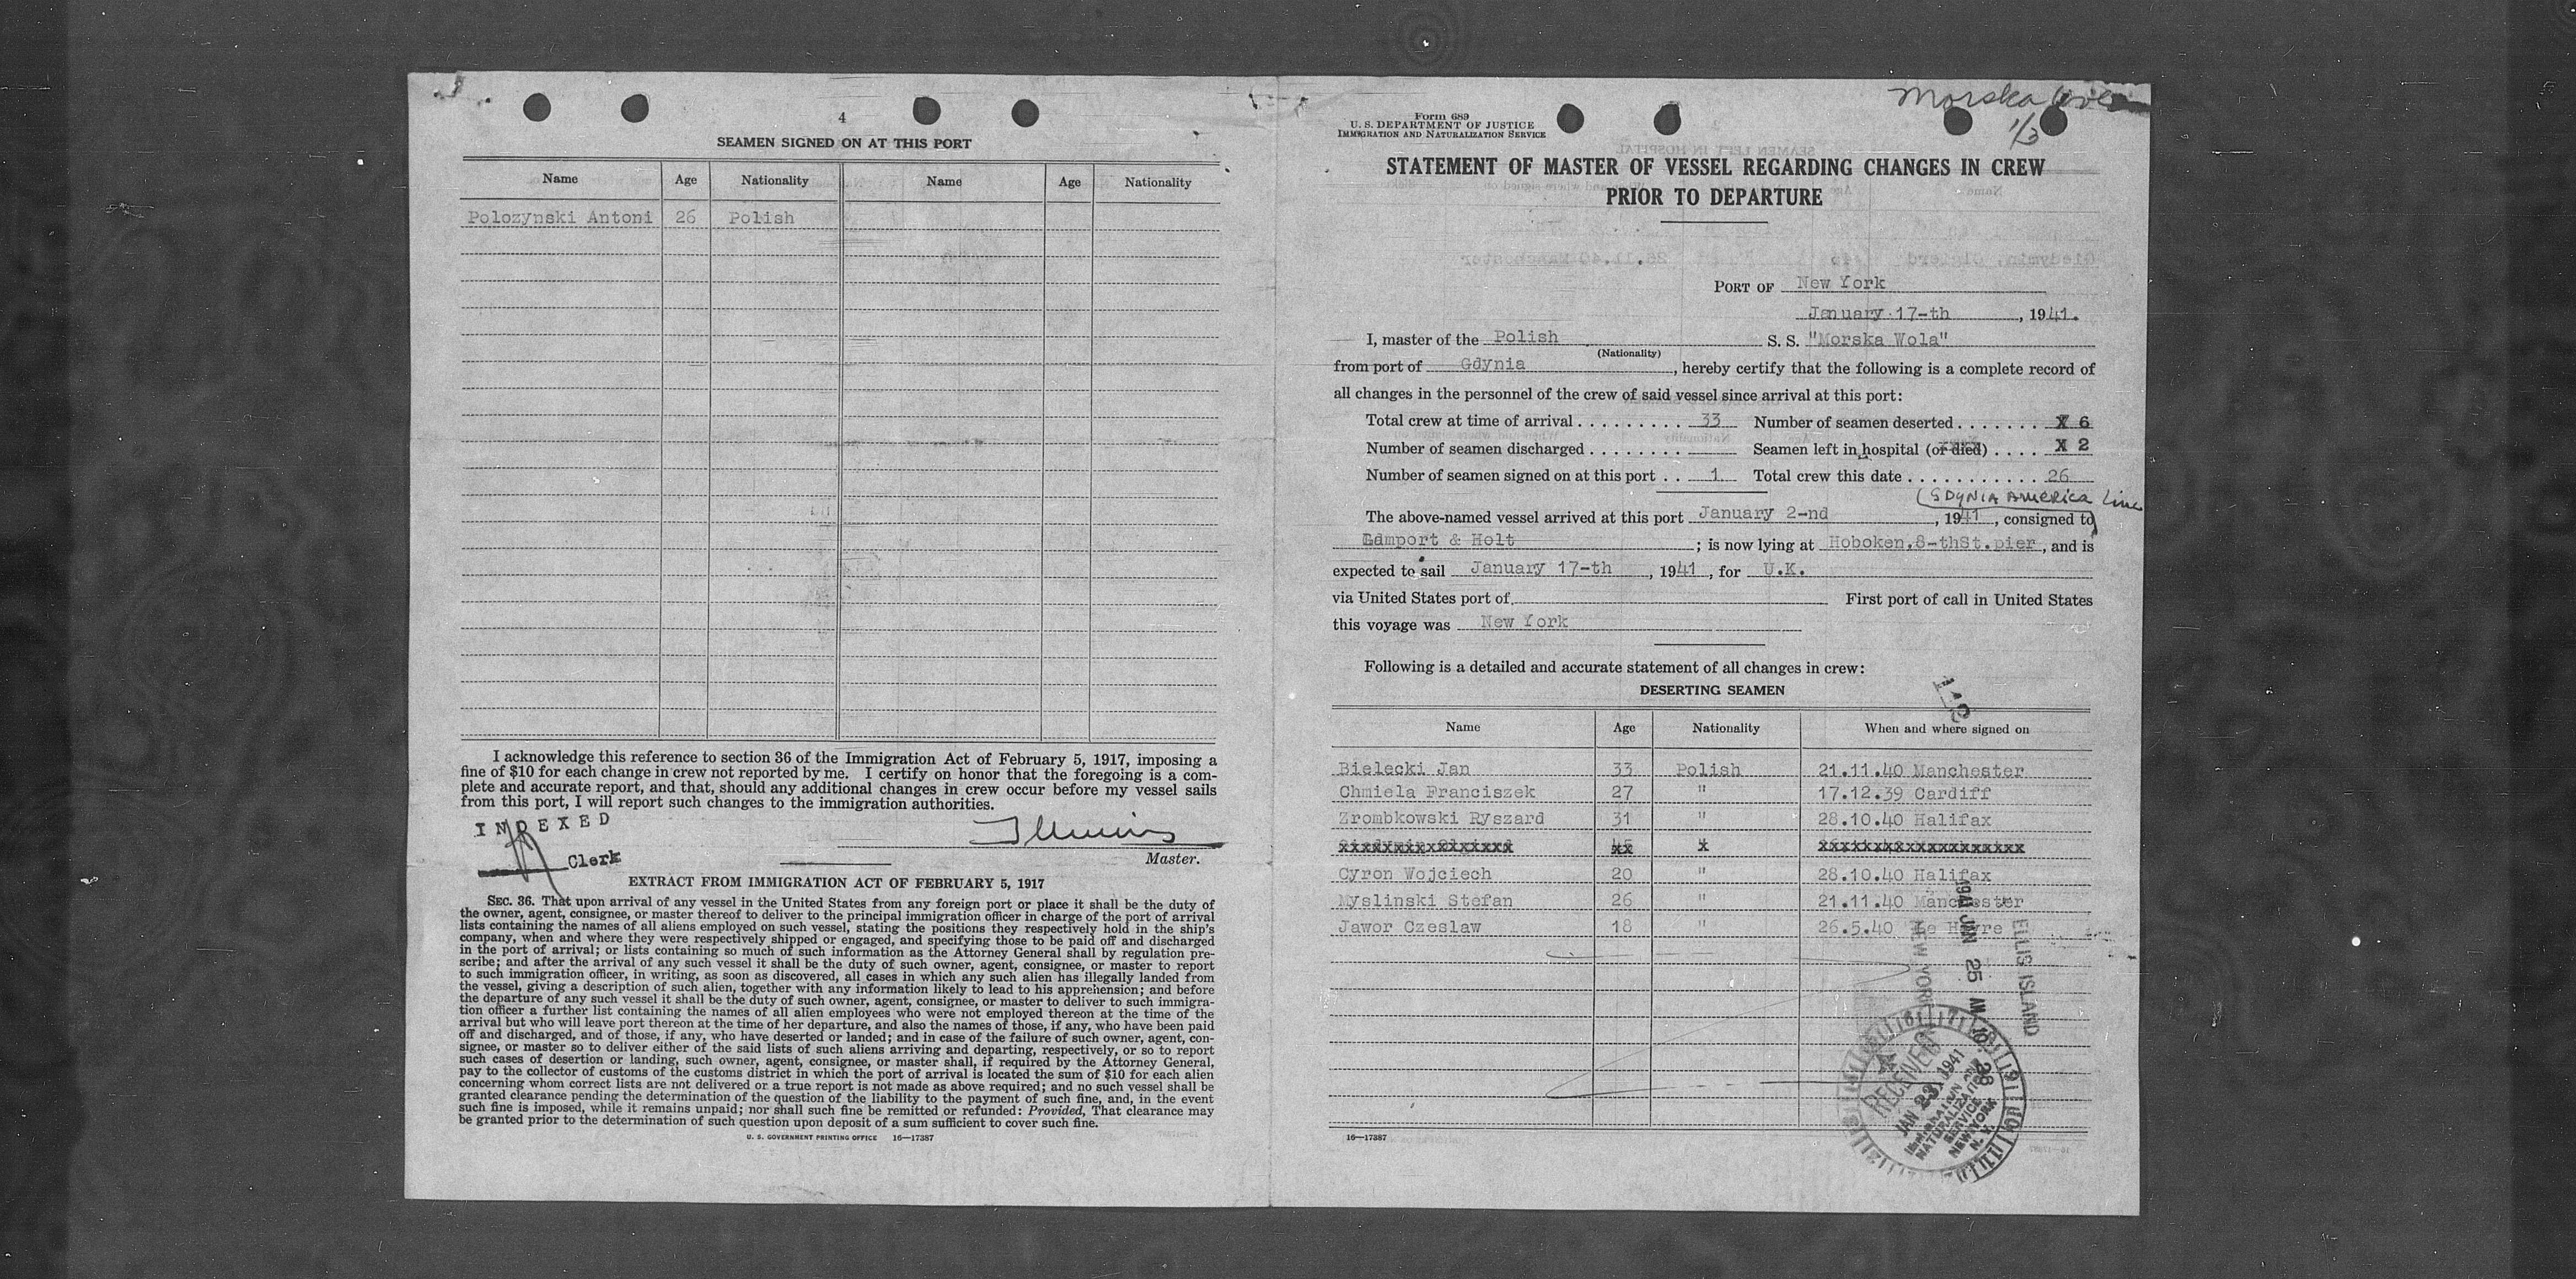 4
SEAMEN SIGNED ON AT THIS PORT
Name Age Nationality Name Age Nationality
Polozynski Antoni 26 Polish
I acknowledge this reference to section 36 of the Immigration Act of February 5, 1917, imposing a
fine of $10 for each change in crew not reported by me. I certify on honor that the foregoing is a com-
plete and accurate report, and that, should any additional changes in crew occur before my vessel sails
from this port, I will report such changes to the immigration authorities.
INDEXED
Clerk
Master.
EXTRACT FROM IMMIGRATION ACT OF FEBRUARY 5, 1917
SEC. 36. That upon arrival of any vessel in the United States from any foreign port or place it shall be the duty of
the owner, agent, consignee, or master thereof to deliver to the principal immigration officer in charge of the port of arrival
lists containing the names of all aliens employed on such vessel, stating the positions they respectively hold in the ship's
company, when and where they were respectively shipped or engaged, and specifying those to be paid off and discharged
in the port of arrival; or lists containing so much of such information as the Attorney General shall by regulation pre-
scribe; and after the arrival of any such vessel it shall be the duty of such owner, agent, consignee, or master to report
to such immigration officer, in writing, as soon as discovered, all cases in which any such alien has illegally landed from
the vessel, giving a description of such alien, together with any information likely to lead to his apprehension; and before
the departure of any such vessel it shall be the duty of such owner, agent, consignee, or master to deliver to such immigra-
tion officer a further list containing the names of all alien employees who were not employed thereon at the time of the
arrival but who will leave port thereon at the time of her departure, and also the names of those, if any, who have been paid
off and discharged, and of those, if any, who have deserted or landed; and in case of the failure of such owner, agent, con-
signee, or master so to deliver either of the said lists of such aliens arriving and departing, respectively, or so to report
such cases of desertion or landing, such owner, agent, consignee, or master shall, if required by the Attorney General,
pay to the collector of customs of the customs district in which the port of arrival is located the sum of $10 for each alien
concerning whom correct lists are not delivered or a true report is not made as above required; and no such vessel shall be
granted clearance pending the determination of the question of the liability to the payment of such fine, and, in the event
such fine is imposed, while it remains unpaid; nor shall such fine be remitted or refunded: Provided, That clearance may
be granted prior to the determination of such question upon deposit of a sum sufficient to cover such fine.
U. S. GOVERNMENT PRINTING OFFICE 16—17387
Morska
1/3
Form 689
U. S. DEPARTMENT OF JUSTICE
IMMIGRATION AND NATURALIZATION SERVICE
STATEMENT OF MASTER OF VESSEL REGARDING CHANGES IN CREW
PRIOR TO DEPARTURE
PORT OF New York
January 17-th, 1941.
I, master of the Polish S. S. "Morska Wola"
(Nationality)
from port of Gdynia, hereby certify that the following is a complete record of
all changes in the personnel of the crew of said vessel since arrival at this port:
Total crew at time of arrival . . . . . . . . . . 33 Number of seamen deserted . . . . . . . X 6
Number of seamen discharged . . . . . . . . Seamen left in hospital (or died) . . . . X 2
Number of seamen signed on at this port . . 1 Total crew this date . . . . . . . . . . . 26
(GDYNIA AMERICA Line
The above-named vessel arrived at this port January 2-nd, 1941, consigned to
Lamport & Holt; is now lying at Hoboken.8-thSt.pier, and is
expected to sail January 17-th, 1941, for U.K.
via United States port of First port of call in United States
this voyage was New York
Following is a detailed and accurate statement of all changes in crew:
DESERTING SEAMEN
Name Age Nationality When and where signed on
Bielecki Jan 33 Polish 21.11.40 Manchester
Chmiela Franciszek 27 " 17.12.39 Cardiff
Zrombkowski Ryszard 31 " 28.10.40 Halifax
Cyron Wojciech 20 " 28.10.40 Halifax
Myslinski Stefan 26 " 21.11.40 Manchester
Jawor Czeslaw 18 " 26.5.40 Le Havre
ELLIS ISLAND
1941 JAN 25 AM 10:28
NEW YORK
RECEIVED
JAN 23 1941
IMMIGRATION AND
NATURALIZATION
SERVICE
NEW YORK
N. Y.
16—17387